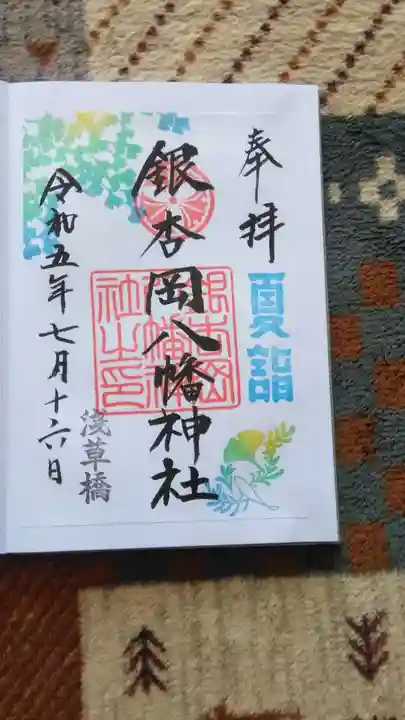 奉拝
夏詣
銀杏岡八幡神社
銀杏岡八幡神社之印
浅草橋
令和五年七月十六日